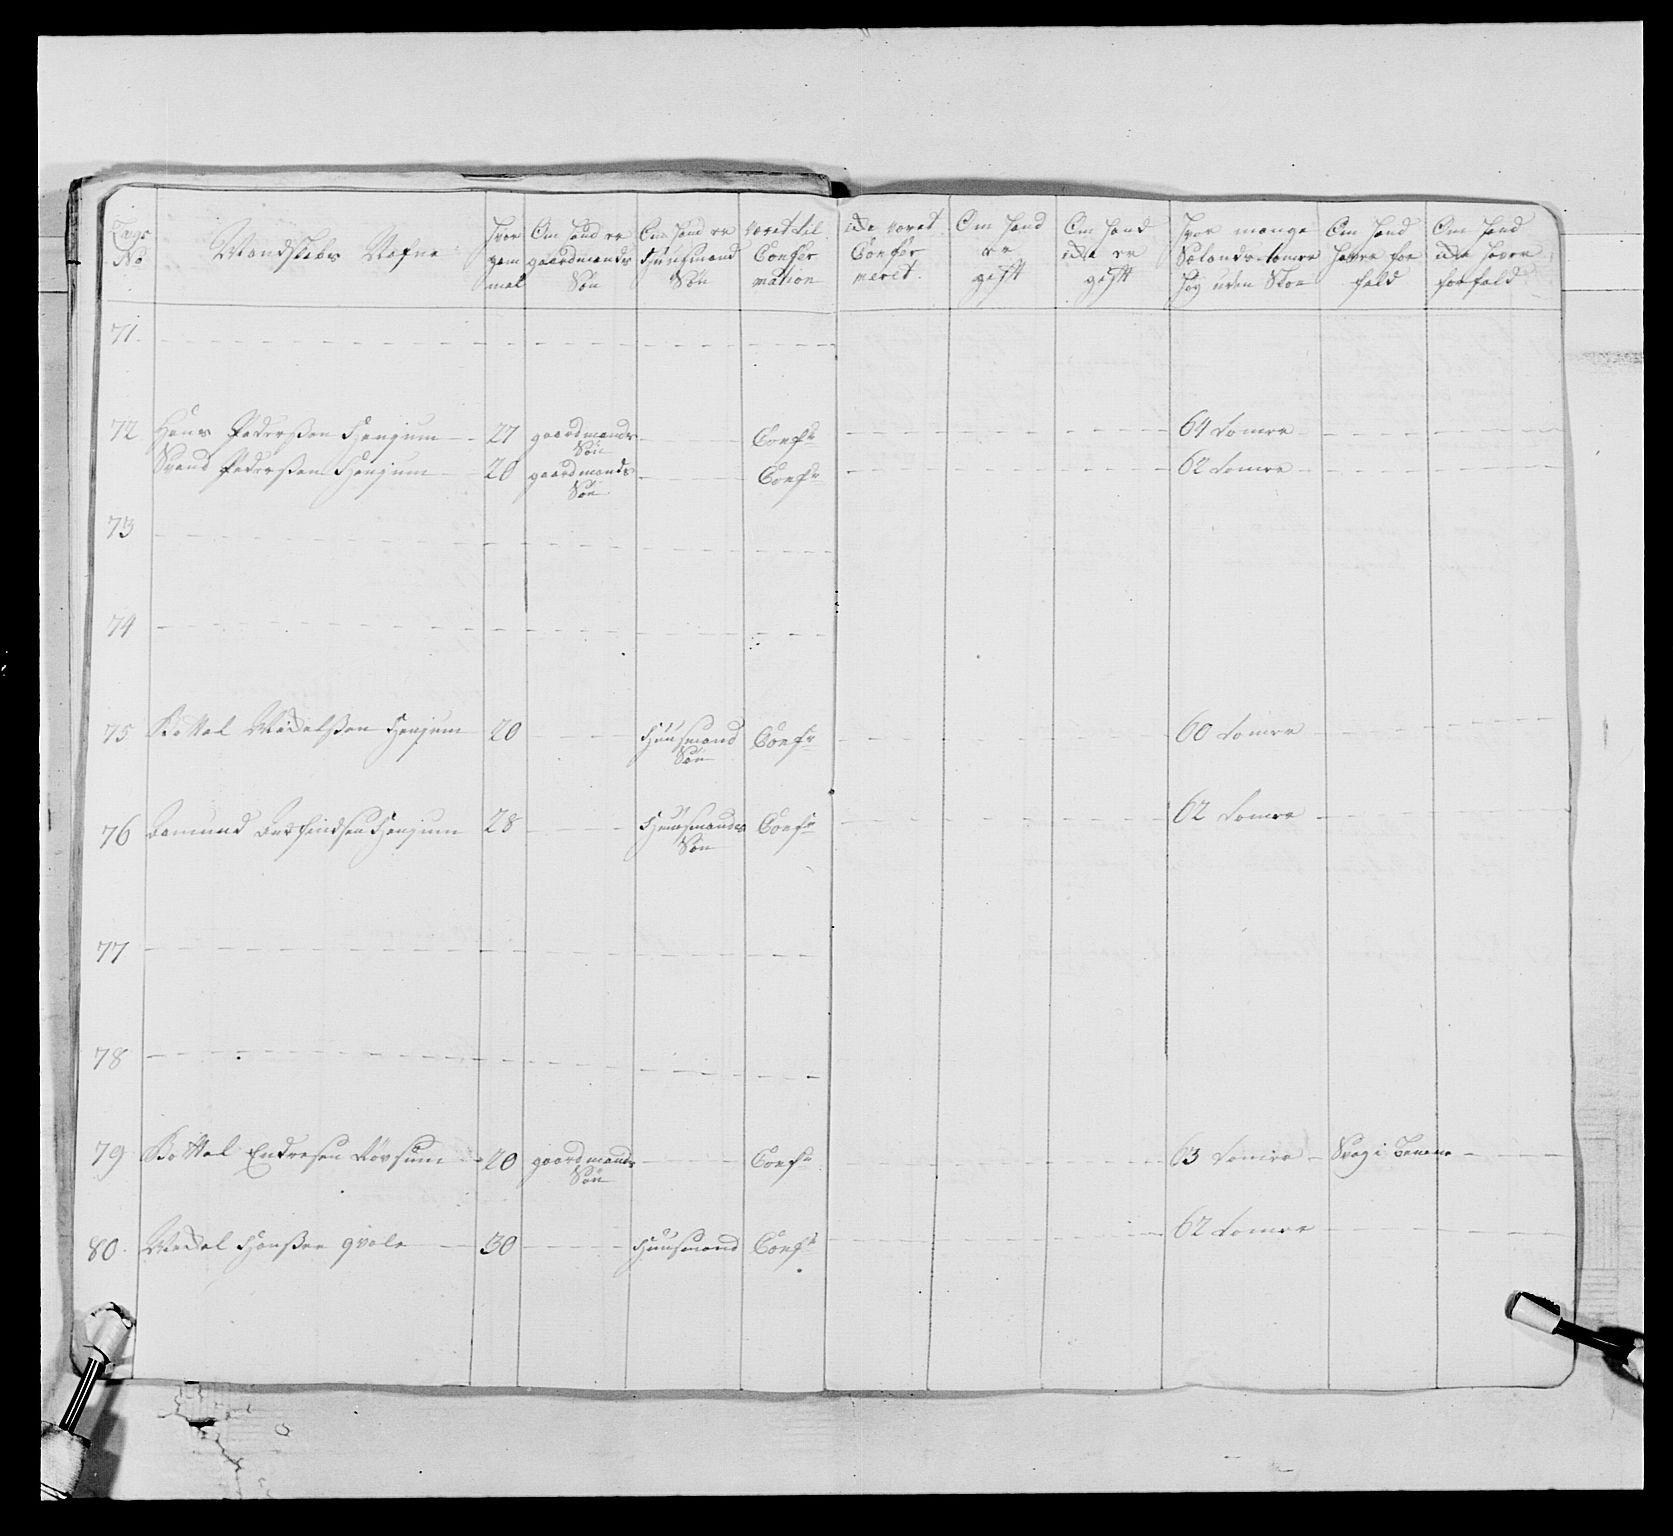 Lægs No | Mandskabs Nafne | Hvor gam mel | Om hand er gaardmands Søn | Om hand er Huusmand Søn | veret til Confir mation | ikke veret Confir meret | Om hand er gift | Om hand ikke er gift | Hvor mange Sælands tomer høy uden Skoe | Om hand haver for fald | Om hand ikke haver forfald
71
72 Hans Pederßen Henjum 27 gaardmands Søn Conf 64 tomer
Svend Pederßen Henjum 20 gaardmands Søn Conf 62 tomer
73
74
75 Bottol Michelßen Henjum 20 Huusmand Søn Conf 60 tomer
76 Aamund Henjum 28 Huusmands Søn Conf 62 tomer
77
78
79 Bottol Endresen Røvsum 20 gaardmands Søn Conf 63 tomer Svag i Benene
80 Michel Hanßen qvale 30 Huusmand Conf 62 tomer